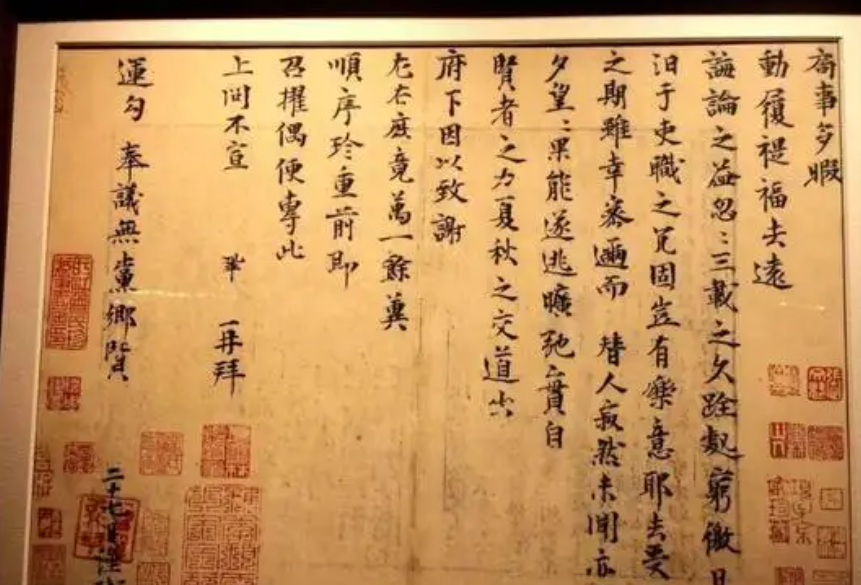 局事多暇
動履禔福去遠
誨論之益忽〻三載之久跧處窮徼日
汨于吏職之冗固豈有樂意耶去受
之期雖幸密邇而替人寂然未聞亦
夕望〻果能遂逃曠弛實自
賢者之力夏秋之交道出
府下因以致謝
左右庶竟萬一餘冀
順序珍重前即
召擢偶便專此
上問不宣 鞏 再拜
運勾奉議無黨鄉賢
二十七日謹